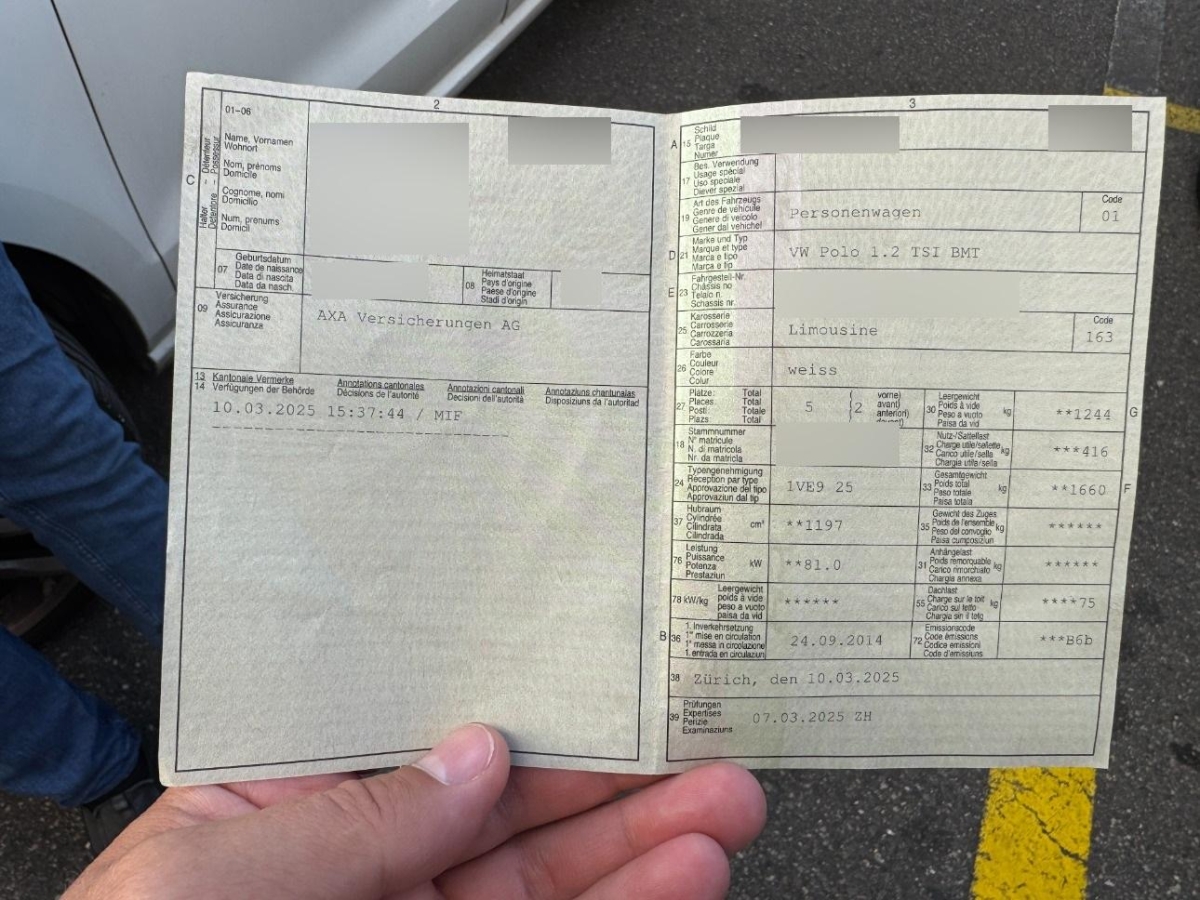 2
01-06
C
Halter - Détenteur
Detentore - Possessur
Name, Vornamen
Wohnort
Nom, prénoms
Domicile
Cognome, nomi
Domicilio
Num, prenums
Domicil
07
Geburtsdatum
Date de naissance
Data di nascita
Data da nasch.
08
Heimatstaat
Pays d'origine
Paese d'origine
Stadi d'origin
09
Versicherung
Assurance
Assicurazione
Assicuranza
AXA Versicherungen AG
13
14
Kantonale Vermerke
Verfügungen der Behörde
Annotations cantonales
Décisions de l'autorité
Annotazioni cantonali
Decisioni dell'autorità
Annotaziuns chantunalas
Disposiziuns da l'autoritad
10.03.2025 15:37:44 / MIF
3
A 15
Schild
Plaque
Targa
Numer
17
Bes. Verwendung
Usage spécial
Uso speciale
Diever spezial
19
Art des Fahrzeugs
Genre de véhicule
Genere di veicolo
Gener dal vehichel
Personenwagen
Code
01
D 21
Marke und Typ
Marque et type
Marca e tipo
Marca e tip
VW Polo 1.2 TSI BMT
E 23
Fahrgestell-Nr.
Châssis no
Telaio n.
Schassis nr.
25
Karosserie
Carrosserie
Carrozzeria
Carossaria
Limousine
Code
163
26
Farbe
Couleur
Colore
Colur
weiss
27
Plätze: Total
Places: Total
Posti: Totale
Plazs: Total
5
(2
vorne)
avant)
anteriori)
30
Leergewicht
Poids à vide
Peso a vuoto
Paisa da vid
kg
**1244
G
18
Stammnummer
N° matricule
N. di matricola
Nr. da matricla
32
Nutz-/Sattellast
Charge utile/sellette
Carico utile/sella
Chargia utila/sella
kg
***416
24
Typengenehmigung
Réception par type
Approvazione del tipo
Approvaziun dal tip
1VE9 25
33
Gesamtgewicht
Poids total
Peso totale
Paisa totala
kg
**1660
F
37
Hubraum
Cylindrée
Cilindrata
Cilindrada
cm³
**1197
35
Gewicht des Zuges
Poids de l'ensemble
Peso del convoglio
Paisa cumposiziun
kg
******
76
Leistung
Puissance
Potenza
Prestaziun
kW
**81.0
31
Anhängelast
Poids remorquable
Carico rimorchiato
Chargia annexa
kg
******
78 kW/kg
Leergewicht
poids à vide
peso a vuoto
paisa da vid
******
55
Dachlast
Charge sur le toit
Carico sul tetto
Chargia sin il tetg
kg
****75
B 36
1. Inverkehrsetzung
1re mise en circulation
1a messa in circolazione
1. entrada en circulaziun
24.09.2014
72
Emissionscode
Code émissions
Codice emissioni
Code d'emissiuns
***B6b
38
Zürich, den 10.03.2025
39
Prüfungen
Expertises
Perizie
Examinaziuns
07.03.2025 ZH